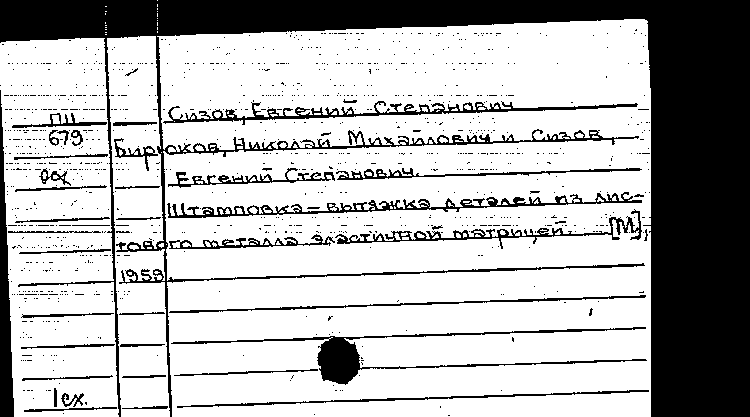 Сизов, Евгений Степанович
П11
679
Бирюков, Николай Михайлович и Сизов,
Евгений Степанович.
Штамповка-вытяжка деталей из лис-
тового металла эластичной матрицей. [М],
1959.
1 ex.